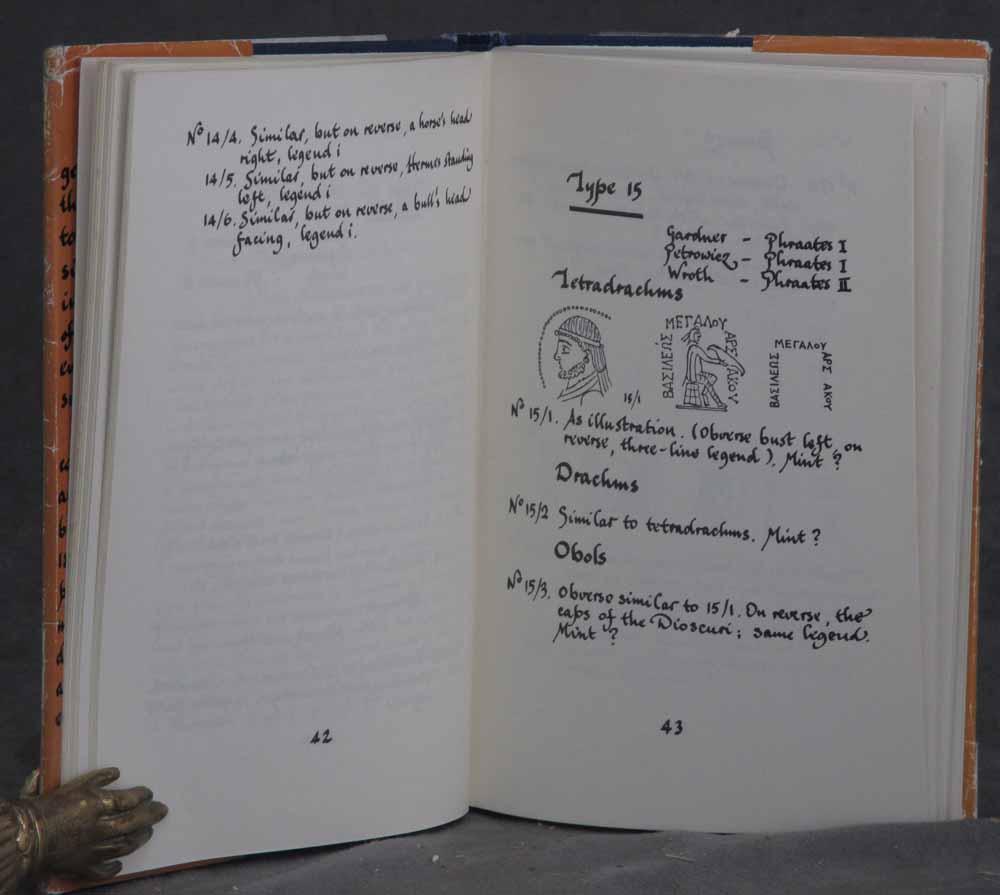 Nº 14/4. Similar, but on reverse, a horse's head
right, legend i
14/5. Similar, but on reverse, Hermes standing
left, legend i
14/6. Similar, but on reverse, a bull's head
facing, legend i.
42
Type 15
Gardner - Phraates I
Petrowicz - Phraates I
Wroth - Phraates II
Tetradrachms
ΒΑΣΙΛΕΩΣ
ΜΕΓΑΛΟΥ
ΑΡΣΑΚΟΥ
ΒΑΣΙΛΕΩΣ
ΜΕΓΑΛΟΥ
ΑΡΣ ΑΚΟΥ
15/1
Nº 15/1. As illustration. (Obverse bust left, on
reverse, three-line legend). Mint ?
Drachms
Nº 15/2 Similar to tetradrachms. Mint ?
Obols
Nº 15/3. Obverse similar to 15/1. On reverse, the
caps of the Dioscuri; same legend.
Mint ?
43